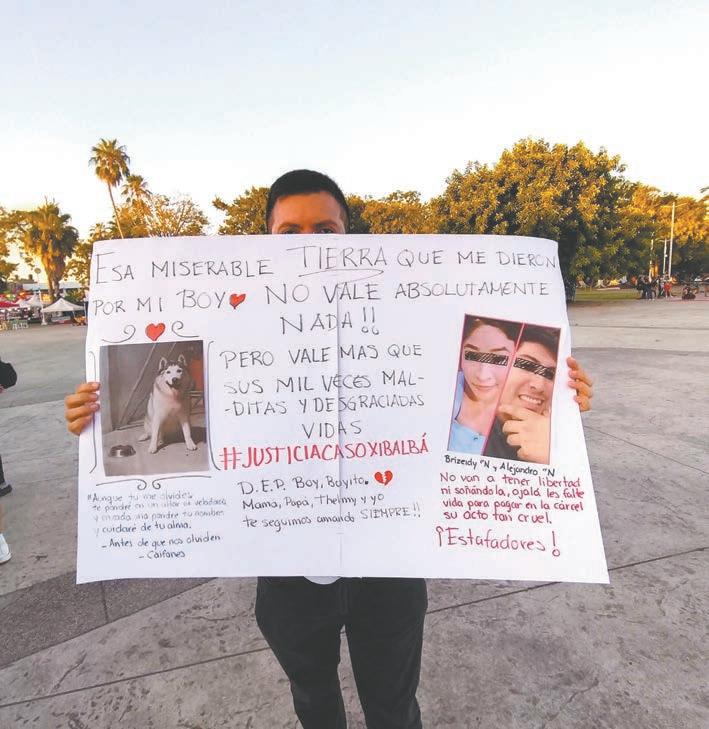 ESA MISERABLE TIERRA QUE ME DIERON
POR MI BOY NO VALE ABSOLUTAMENTE
NADA!!
PERO VALE MAS QUE
SUS MIL VECES MAL-
-DITAS Y DESGRACIADAS
VIDAS
#JUSTICIACASOXIBALBÁ
D.E.P. Boy, Boyito.
Mamá, Papá, Thelmy y yo
te seguimos amando SIEMPRE!!
"Aunque tu me olvides,
te pondré en un altar de veladoras
y en cada una pondré tu nombre
y cuidaré de tu alma.
- Antes de que nos olviden
- Caifanes
Brizeidy "N y Alejandro "N
No van a tener libertad
ni soñándola, ojalá les falte
vida para pagar en la cárcel
su acto tan cruel.
¡Estafadores!